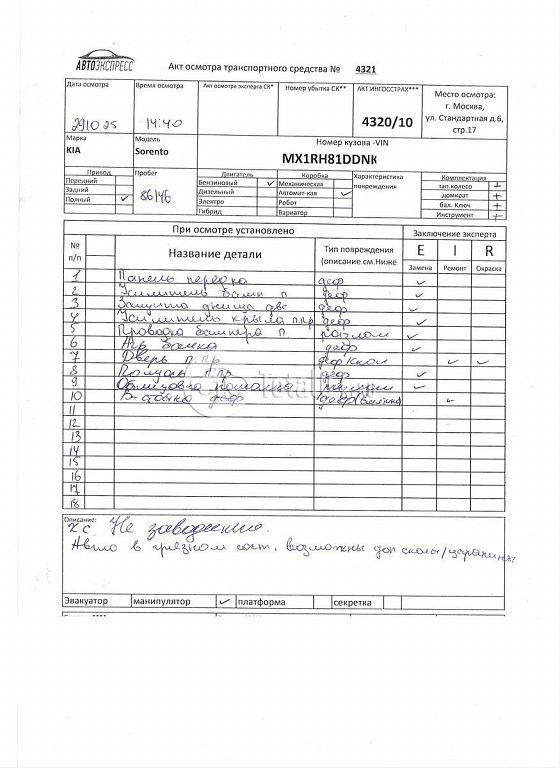 АВТОЭКСПРЕСС
Акт осмотра транспортного средства № 4321
Дата осмотра
291025
Время осмотра
14:40
Акт осмотра эксперта СК*
Номер убытка СК**
АКТ ИНГОССТРАХ***
4320/10
Место осмотра:
г. Москва,
ул. Стандартная д.6,
стр.17
Марка
KIA
Модель
Sorento
Номер кузова -VIN
MX1RH81DDNK
Привод
Передний
Задний
Полный ✓
Пробег
86146
Двигатель
Бензиновый ✓
Дизельный
Электро
Гибрид
Коробка
Механическая
Автомат-кая ✓
Робот
Вариатор
Характеристика
повреждения
Комплектация
зап.колесо +
домкрат +
бал. Ключ +
Инструмент +
При осмотре установлено
Заключение эксперта
№
п/п
Название детали
Тип повреждения
(описание см.Ниже
E I R
Замена Ремонт Окраска
1 Панель передка деф ✓
2 Усилитель бамп п деф ✓
3 Защита днища двс деф ✓
4 Усилитель крыла п.пр деф ✓
5 Проводка бампера п. разлом ✓
6 деф ✓
7 Дверь п.пр деф/скол ✓ ✓
8 п.пр деф ✓
9 ✓
10 деф ✓
11
12
13
14
15
16
17
18
Total
Описание:
Не заведение.
Авто в грязном сост. возможны доп сколы/царапины
Эвакуатор манипулятор ✓ платформа секретка